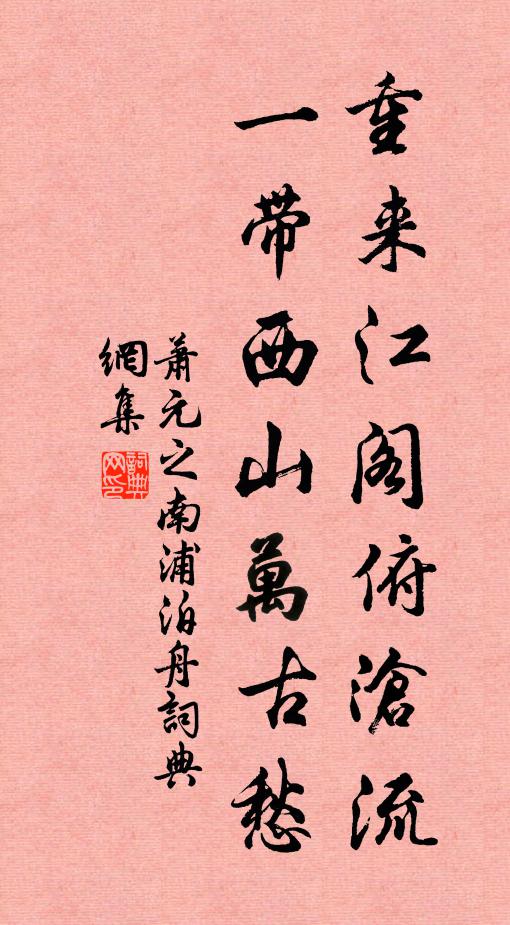 重来江阁俯滄流
一带西山萬古愁
蕭元之南浦泊舟詞典
網集
詞典网印